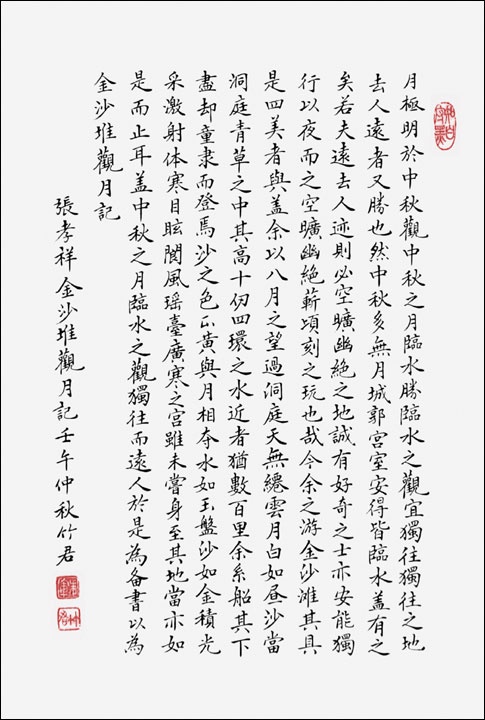 月極明於中秋觀中秋之月臨水勝臨水之觀宜獨往獨往之地
去人遠者又勝也然中秋多無月城郭宮室安得皆臨水盖有之
矣若夫遠去人迹則必空曠幽絶之地誠有好奇之士亦安能獨
行以夜而之空曠幽絶蘄頃刻之玩也哉今余之游金沙滩其具
是四美者與盖余以八月之望過洞庭天無纖雲月白如昼沙當
洞庭青草之中其高十仞四環之水近者猶數百里余系船其下
盡却童隶而登焉沙之色正黃與月相夺水如玉盤沙如金積光
采激射体寒目眩閬風瑶臺廣寒之宮雖未嘗身至其地當亦如
是而止耳盖中秋之月臨水之觀獨往而遠人於是為备書以為
金沙堆觀月記
張孝祥金沙堆觀月記壬午仲秋竹君